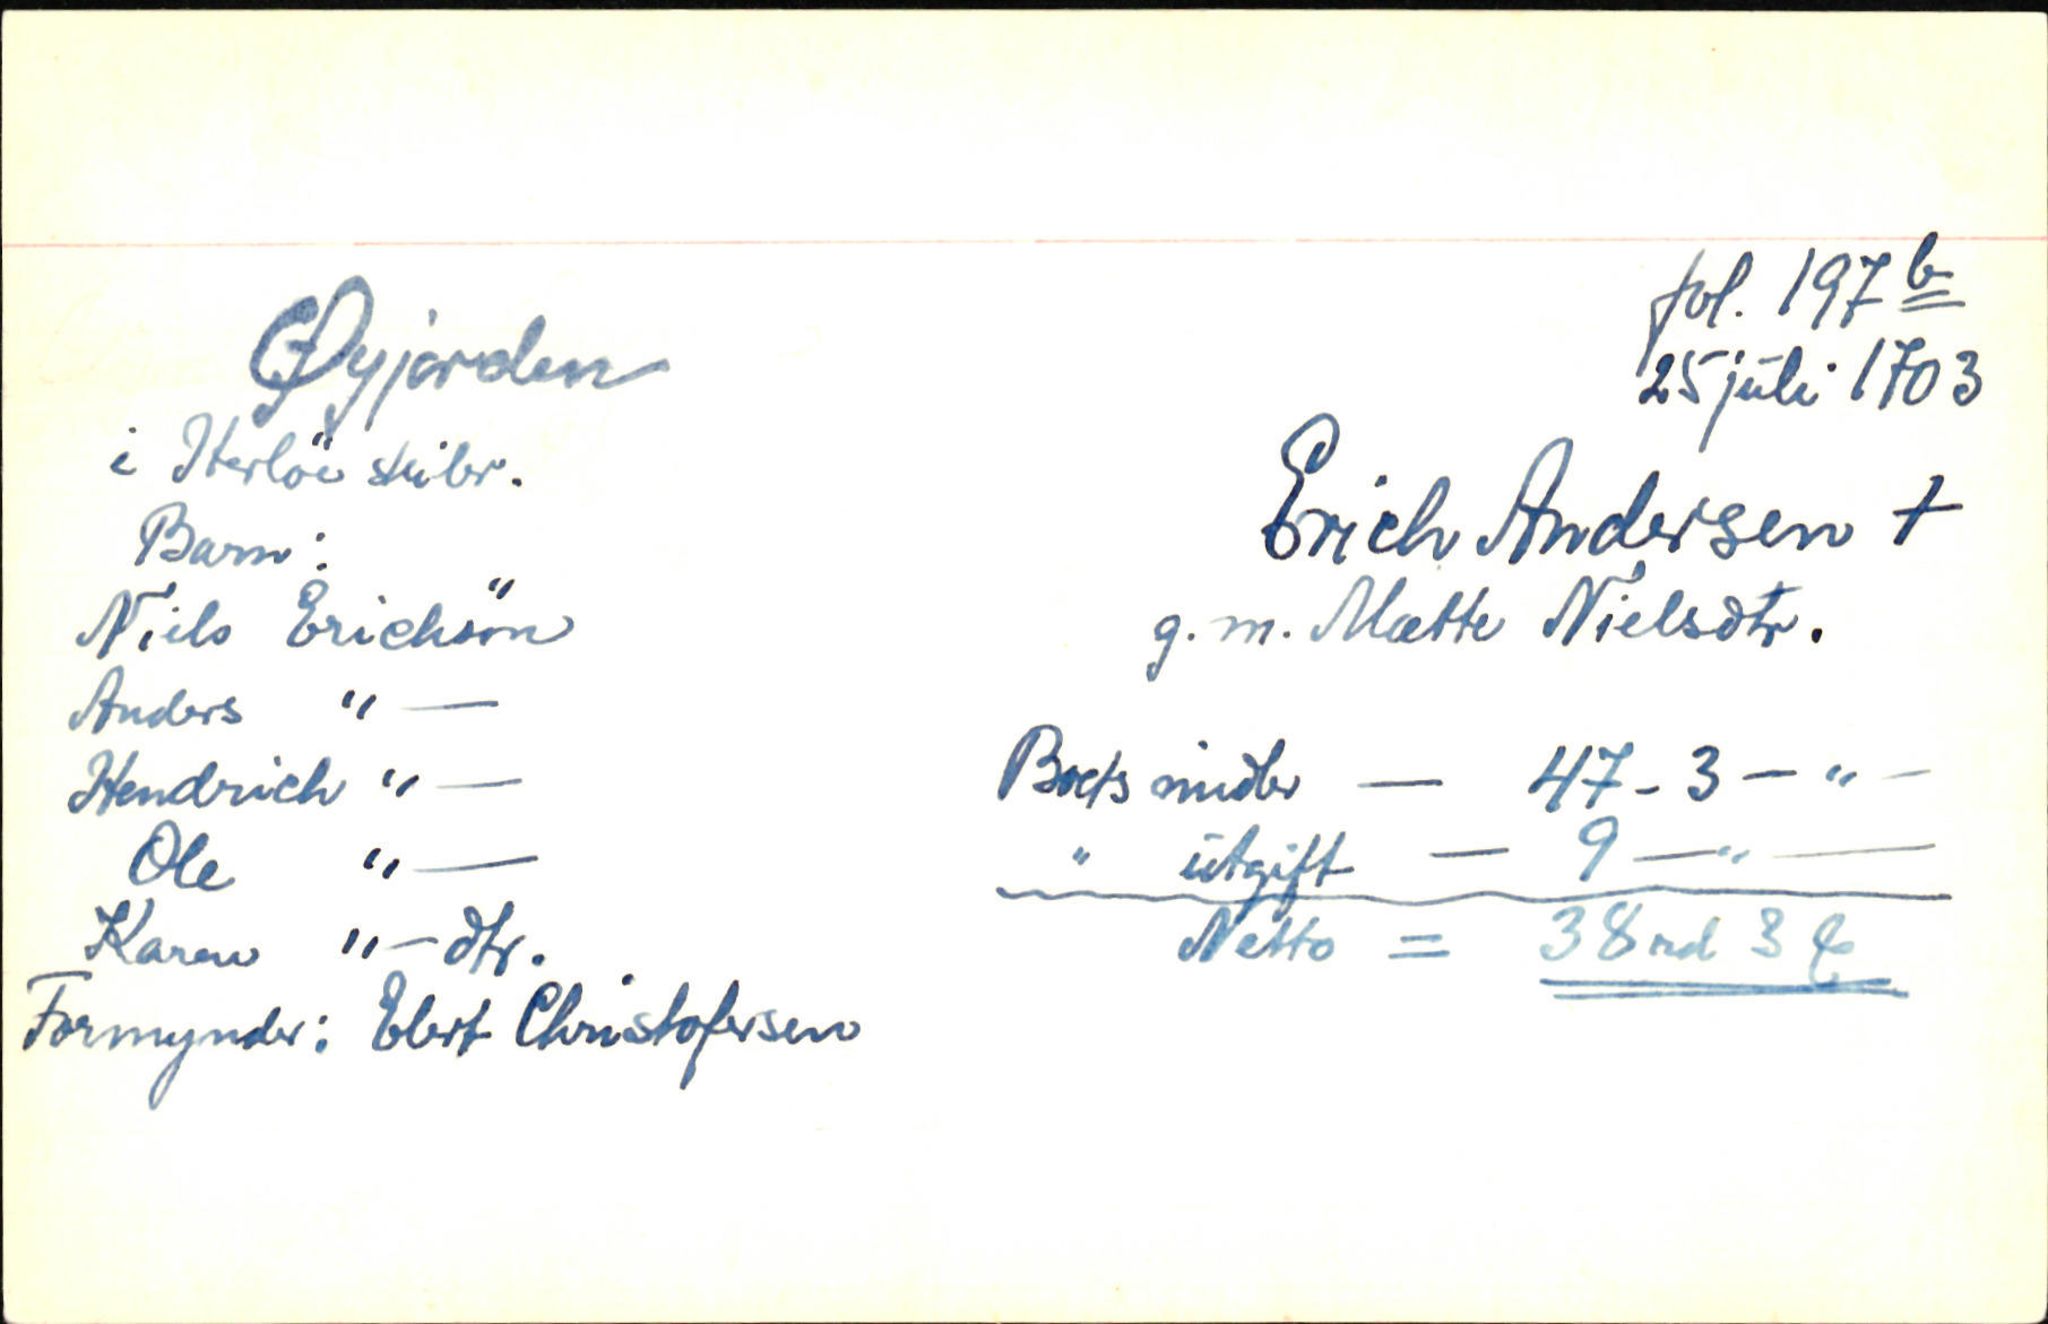 fol. 197 b
25 juli 1703
Øyjorden
i Herlöe skibr.
Erich Andersen +
g. m. Mætte Nielsdtr.
Barn:
Niels Erichsön
Anders " —
Hendrich " —
Ole " —
Karen " — dtr.
Formynder: Ebert Christofersen
Boets midler — 47 - 3 — " —
" utgift — 9 — " —
Netto = 38 rd 3